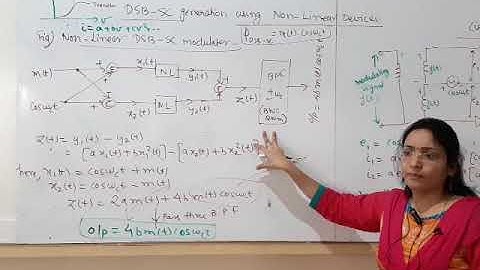 DSB-SC generation using Non-Linear Devices
i = a+bv+cv²...
Fig) Non-Linear DSB-SC modulator
m(t)
x₁(t)
NL
y₁(t)
+
Z(t)
BPF
±ω
cosωct
x₂(t)
NL
y₂(t)
Z(t) = y₁(t) - y₂(t)
= [ax₁(t)+bx₁²(t)] - [ax₂(t)+bx₂²(t)]
here, x₁(t) = cosωct + m(t)
x₂(t) = cosωct - m(t)
Z(t) = 2am(t) + 4bm(t)cosωct
Pass thro B P F
o/p = 4bm(t)cosωct
modulating
signal
e₁ = co
i₁ = a
i₂ = a